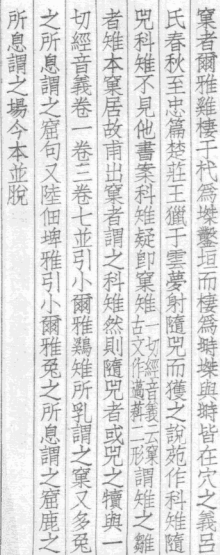 窠者爾雅雞棲于杙爲榤鑿垣而棲爲塒榤與塒皆在穴之義呂
氏春秋至忠篇楚莊王獵于雲夢射隨兕而獲之說苑作科雉隨
兕科雉不見他書案科雉疑卽窠雉一切經音義云窠古文作二形謂雉之雛
者雉本窠居故甫出窠者謂之科雉然則隨兕者或兕之犢與一
切經音義卷一卷三卷七並引小爾雅鷄雉所乳謂之窠又多兔
之所息謂之窟句又陸佃埤雅引小爾雅兔之所息謂之窟鹿之
所息謂之場今本並脫